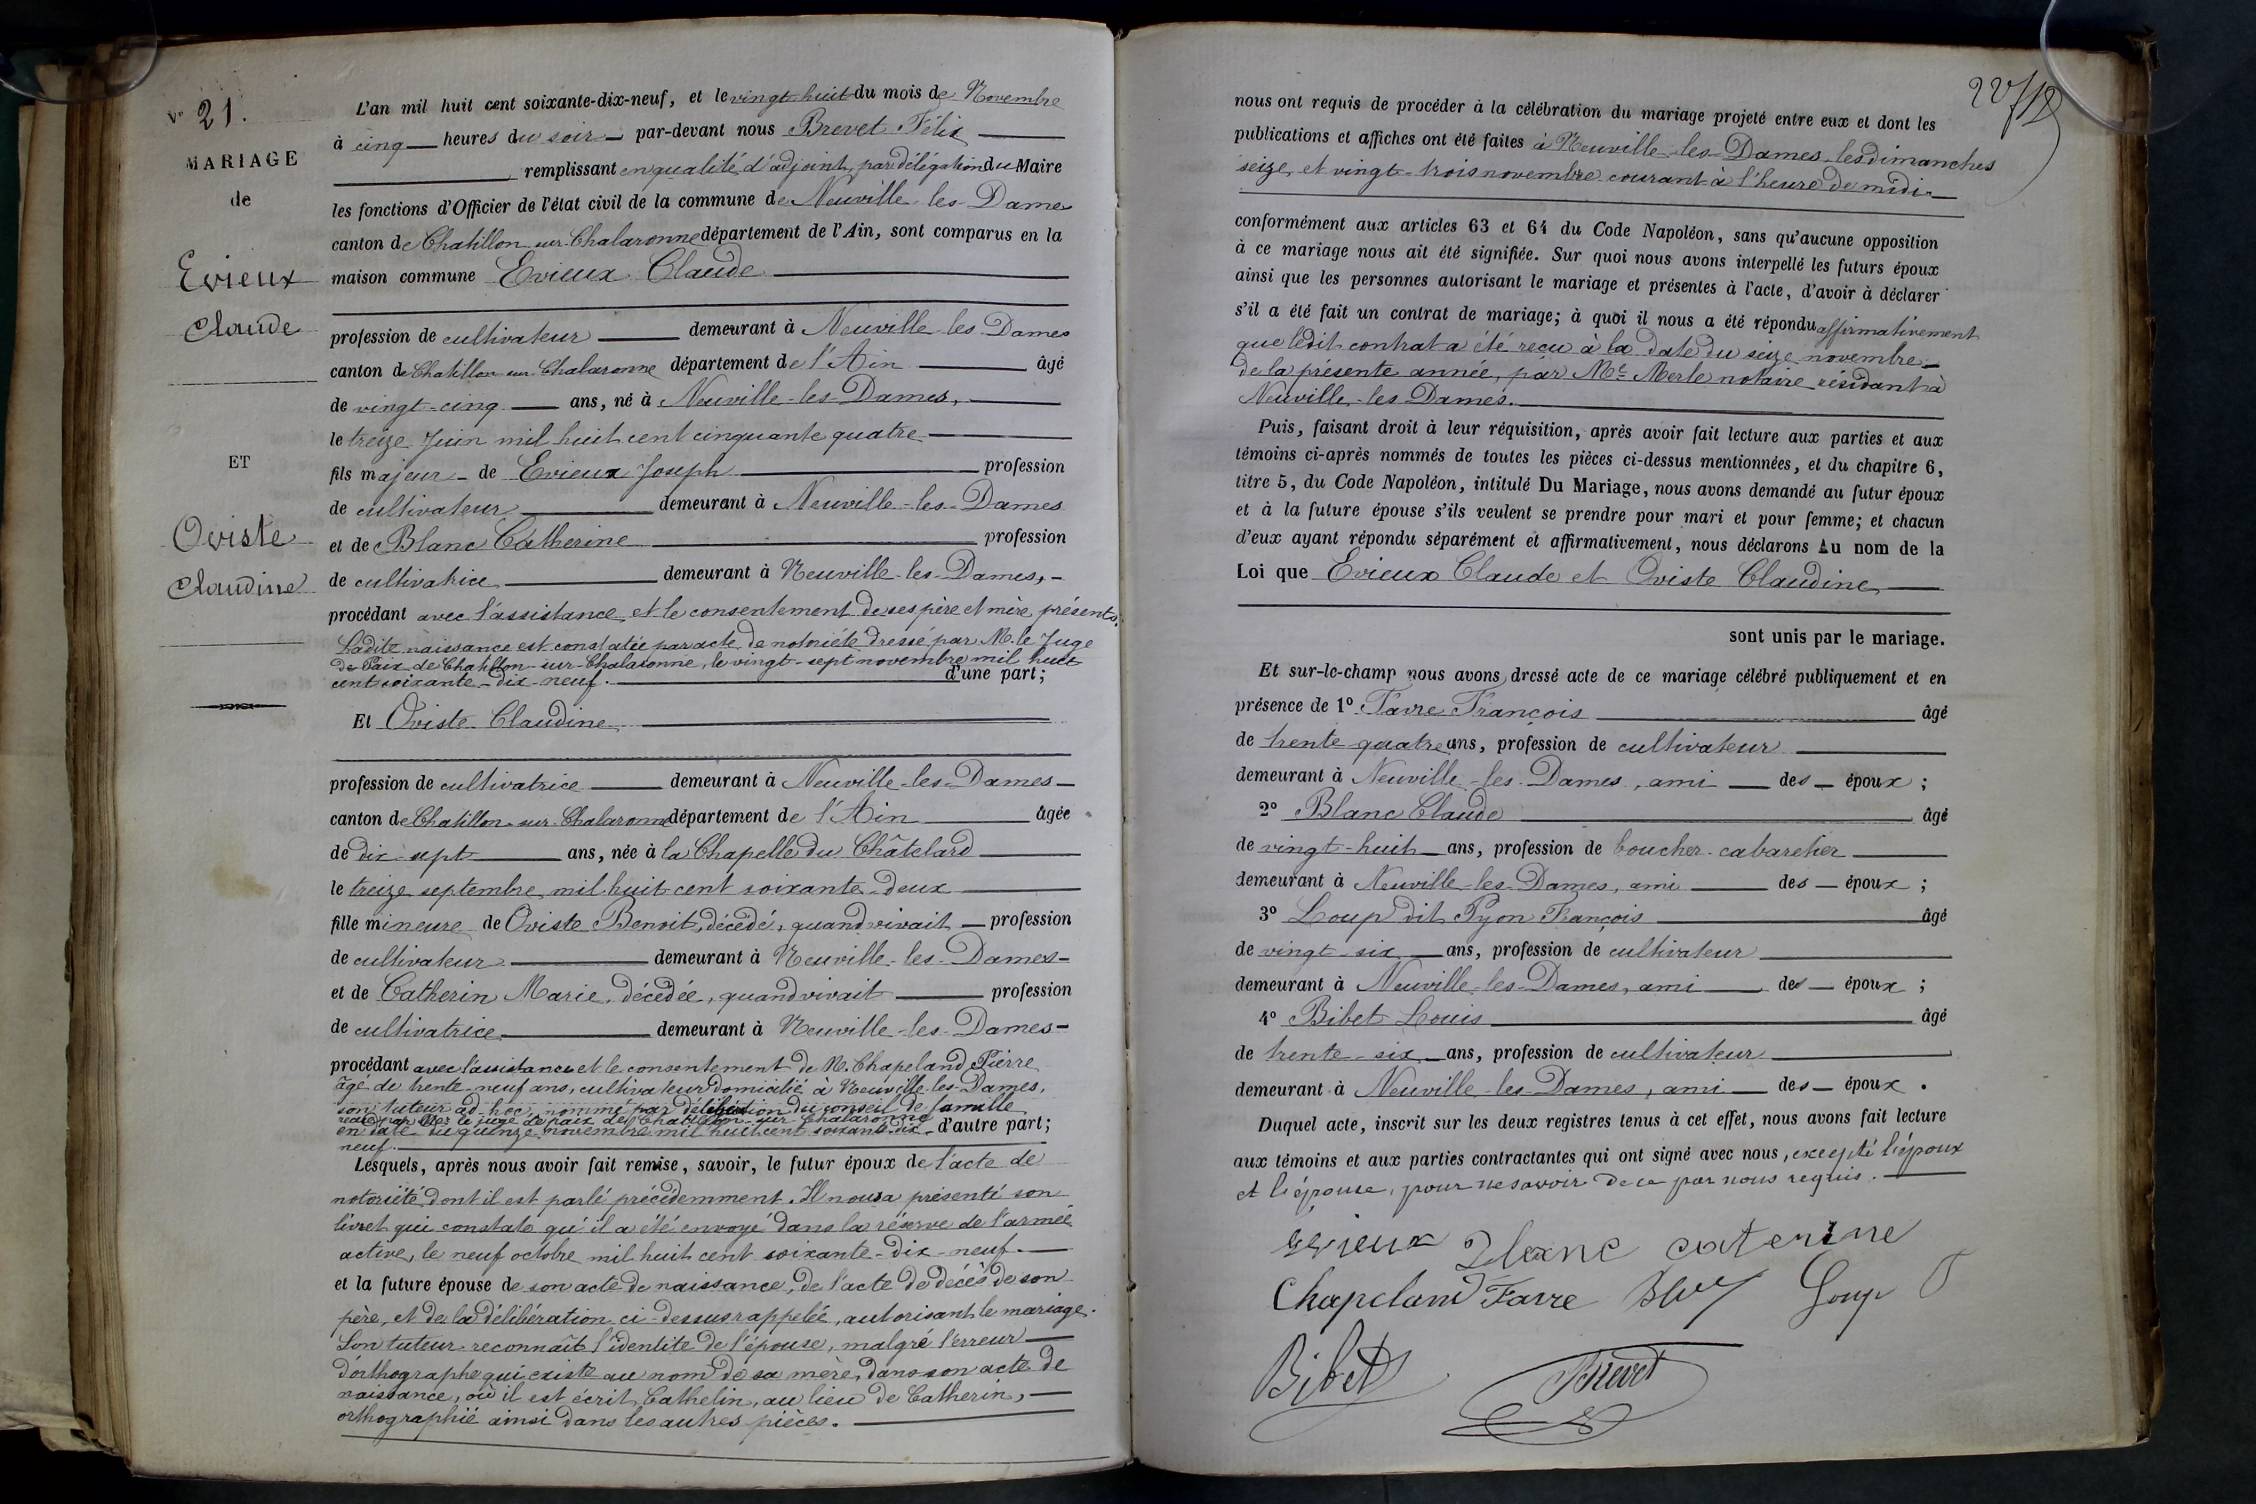 N° 21.
MARIAGE
de
Evieux
Claude
ET
Oviste
Claudine
L'an mil huit cent soixante-dix-neuf, et le vingt-huit du mois de Novembre
à cinq heures du soir par-devant nous Brevet Félix
remplissant en qualité d'adjoint, par délégation du Maire
les fonctions d'Officier de l'état civil de la commune de Neuville-les-Dames
canton de Chatillon-sur-Chalaronne département de l'Ain, sont comparus en la
maison commune Evieux Claude
profession de cultivateur demeurant à Neuville-les-Dames
canton de Chatillon-sur-Chalaronne département de l'Ain âgé
de vingt-cinq ans, né à Neuville-les-Dames,
le treize Juin mil huit cent cinquante quatre
fils majeur de Evieux Joseph profession
de cultivateur demeurant à Neuville-les-Dames
et de Blanc Catherine profession
de cultivatrice demeurant à Neuville-les-Dames,
procédant avec l'assistance et le consentement de ses père et mère, présents.
Ladite naissance est constatée par acte de notoriété dressé par M. le Juge
de Paix de Chatillon-sur-Chalaronne, le vingt-sept novembre mil huit
cent soixante-dix-neuf. d'une part;
Et Oviste Claudine
profession de cultivatrice demeurant à Neuville-les-Dames
canton de Chatillon-sur-Chalaronne département de l'Ain âgée
de dix-sept ans, née à la Chapelle du Châtelard
le treize septembre mil huit cent soixante-deux
fille mineure de Oviste Benoit, décédé, quand vivait profession
de cultivateur demeurant à Neuville-les-Dames
et de Catherin Marie, décédée, quand vivait profession
de cultivatrice demeurant à Neuville-les-Dames
procédant avec l'assistance et le consentement de M. Chapeland Pierre
âgé de trente-neuf ans, cultivateur domicilié à Neuville-les-Dames,
son tuteur ad-hoc, nommé par délibération du conseil de famille
par le juge de paix de Chatillon-sur-Chalaronne
en date du quinze novembre mil huit cent soixante-dix d'autre part;
neuf.
Lesquels, après nous avoir fait remise, savoir, le futur époux de l'acte de
notoriété dont il est parlé précédemment. Il nous a présenté son
livret qui constate qu'il a été envoyé dans la réserve de l'armée
active, le neuf octobre mil huit cent soixante-dix-neuf.
et la future épouse de son acte de naissance, de l'acte de décès de son
père, et de la délibération ci-dessus rappelée, autorisant le mariage.
Son tuteur reconnaît l'identité de l'épouse, malgré l'erreur
d'orthographe qui existe au nom de sa mère, dans son acte de
naissance, où il est écrit Cathelin, au lieu de Catherin,
orthographié ainsi dans les autres pièces.
nous ont requis de procéder à la célébration du mariage projeté entre eux et dont les
publications et affiches ont été faites à Neuville-les-Dames les dimanches
seize, et vingt-trois novembre courant à l'heure de midi
conformément aux articles 63 et 64 du Code Napoléon, sans qu'aucune opposition
à ce mariage nous ait été signifiée. Sur quoi nous avons interpellé les futurs époux
ainsi que les personnes autorisant le mariage et présentes à l'acte, d'avoir à déclarer
s'il a été fait un contrat de mariage; à quoi il nous a été répondu affirmativement
que ledit contrat a été reçu à la date du seize novembre
de la présente année, par Me Merle notaire résidant à
Neuville-les-Dames.
Puis, faisant droit à leur réquisition, après avoir fait lecture aux parties et aux
témoins ci-après nommés de toutes les pièces ci-dessus mentionnées, et du chapitre 6,
titre 5, du Code Napoléon, intitulé Du Mariage, nous avons demandé au futur époux
et à la future épouse s'ils veulent se prendre pour mari et pour femme; et chacun
d'eux ayant répondu séparément et affirmativement, nous déclarons Au nom de la
Loi que Evieux Claude et Oviste Claudine
sont unis par le mariage.
Et sur-le-champ nous avons dressé acte de ce mariage célébré publiquement et en
présence de 1° Favre François âgé
de trente quatre ans, profession de cultivateur
demeurant à Neuville-les-Dames, ami des époux;
2° Blanc Claude âgé
de vingt-huit ans, profession de boucher-cabaretier
demeurant à Neuville-les-Dames, ami des époux;
3° Loup dit Pyon François âgé
de vingt-six ans, profession de cultivateur
demeurant à Neuville-les-Dames, ami des époux;
4° Bibet Louis âgé
de trente-six ans, profession de cultivateur
demeurant à Neuville-les-Dames, ami des époux.
Duquel acte, inscrit sur les deux registres tenus à cet effet, nous avons fait lecture
aux témoins et aux parties contractantes qui ont signé avec nous, excepté l'époux
et l'épouse, pour ne savoir de ce par nous requis.
Evieux Blanc caterine
Chapeland Favre Loup
Bibet Brevet